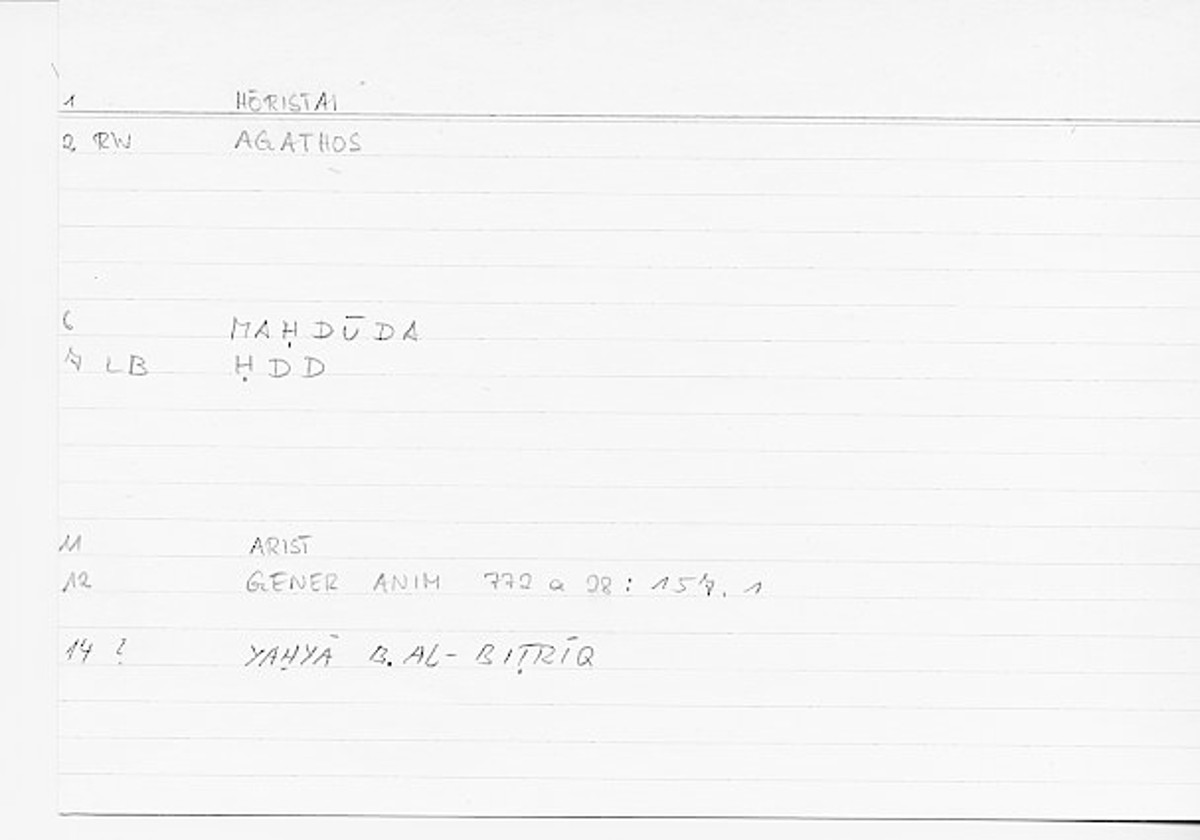 1 HŌRISTAI
2 RW AGATHOS
6 MAḤDŪDA
7 LB ḤDD
11 ARIST
12 GENER ANIM 772 a 28 : 157. 1
14 ? YAḤYĀ B. AL-BIṬRĪQ